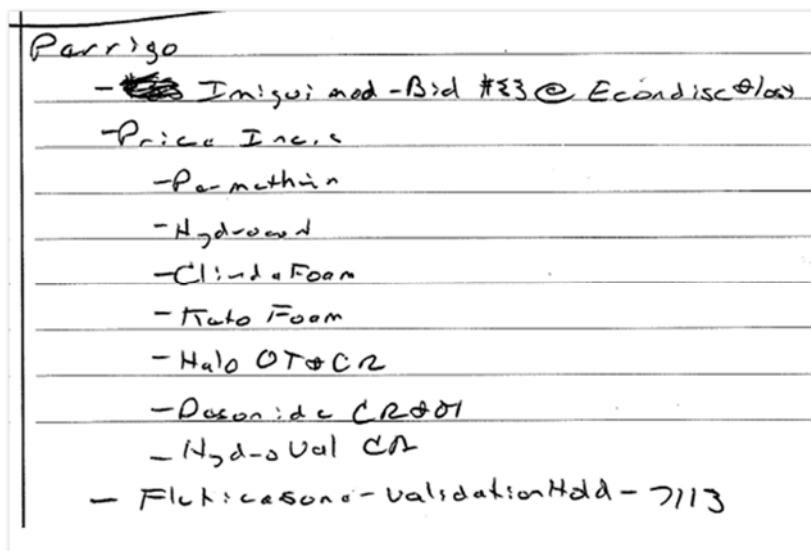 Parrigo
- Imiquimod - Bid #{}3 @ Econdisc
- Price Incr.s
- Permethrin
- Hydrocort
- Clinda Foam
- Keto Foam
- Halo OT + CR
- Desonide CR + OT
- Hydro Val CR
- Fluticasone - Validation Hold - 7/13